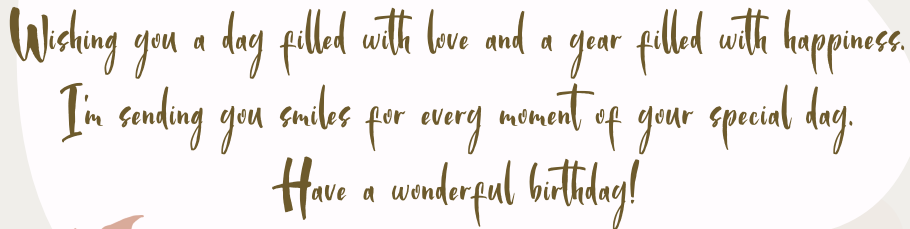 Wishing you a day filled with love and a year filled with happiness.
I'm sending you smiles for every moment of your special day.
Have a wonderful birthday!